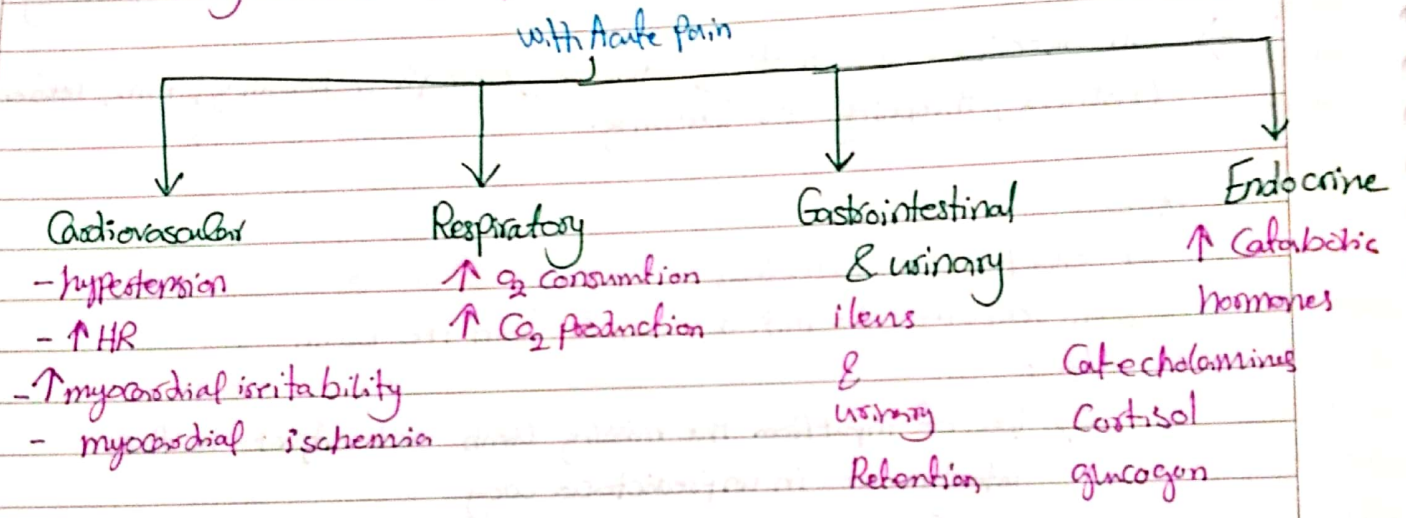 with Acute pain
Cardiovascular
- hypertension
- ↑ HR
- ↑ myocardial irritability
- myocardial ischemia
Respiratory
↑ O₂ Consumtion
↑ CO₂ production
Gastrointestinal
& urinary
ileus
&
urinary
Retention
Endocrine
↑ Catabolic
hormones
Catecholamines
Cortisol
glucagon